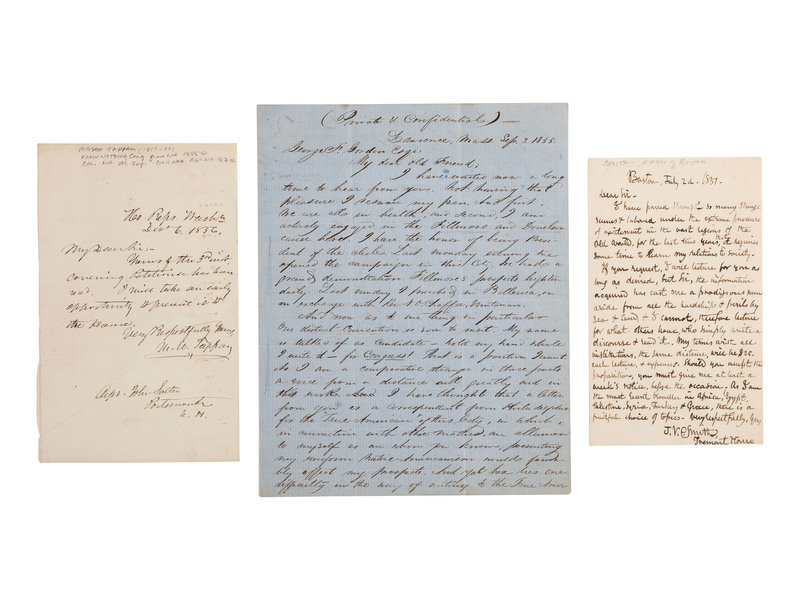 MASON TAPPAN (1817-86)
KNOW NOTHING Cong. from NH 1855-61
COL, NH Vol Inf.
Ho. Reps. Washn
Decr 6, 1856,
My dear Sir,
Yours of the 3rd inst.
covering Petition has been
rec'd. I will take an early
opportunity to present it to
the House.
Very Respectfully Yours
M. W. Tappan
John
Portsmouth
N. H.
(Private & Confidential)
Lawrence, Mass. Sep. 3. 1856.
George P. Esqr.
My dear old Friend,
I have waited now a long
time to hear from you. Not having that
pleasure I resume my pen. And first,
We are all in health, and second, I am
actively engaged in the Fillmore and Donelson
cause here. I have the honor of being Presi-
dent of the clubs. Last Monday eve'g we
opened the campaign in this City. We had a
grand demonstration. Fillmore's prospects brighten
daily. Last Sunday I preached in Billerica, on
an exchange with the Unitarian.
And now as to one thing in particular
Our district Convention is soon to meet. My name
is talked of as candidate - hold my hand while
I write it - for Congress! That is a position I want
As I am a comparative stranger in these parts
a voice from a distance will greatly aid in
this work. And I have thought that a letter
from you as a correspondent from Philadelphia
for the True American of this City, in which,
in connection with other matters, an allusion
to myself as one whom you know, presenting
my uniform Native Americanism would favora-
bly affect my prospects. And yet there lies one
difficulty in the way of writing to the True Amer
SMITH - MAYOR of Boston
Boston, July 2d. 1857.
Dear Sir -
I have passed through so many strange
scenes & labored under the extreme pressure
of excitement in the vast regions of the
old world, for the last two years, that it requires
some time to learn my relations to society.
If you request, I will lecture for you as
long as desired, but Sir, the information
acquired has cost me a prodigious sum
aside from all the hardships & perils by
sea & land, & I cannot, therefore lecture
for what others have, who simply write a
discourse & read it. My terms with all
institutions, the same distance, will be $25.
each lecture, & expenses. Should you accept the
proposition, you must give me at least a
week's notice, before the occasion. As I am
the most travelled in Africa, Egypt,
Palestine, Syria, Turkey & Greece, there is a
fruitful choice of topics. Very respectfully, Yours
J. V. C. Smith
Tremont House